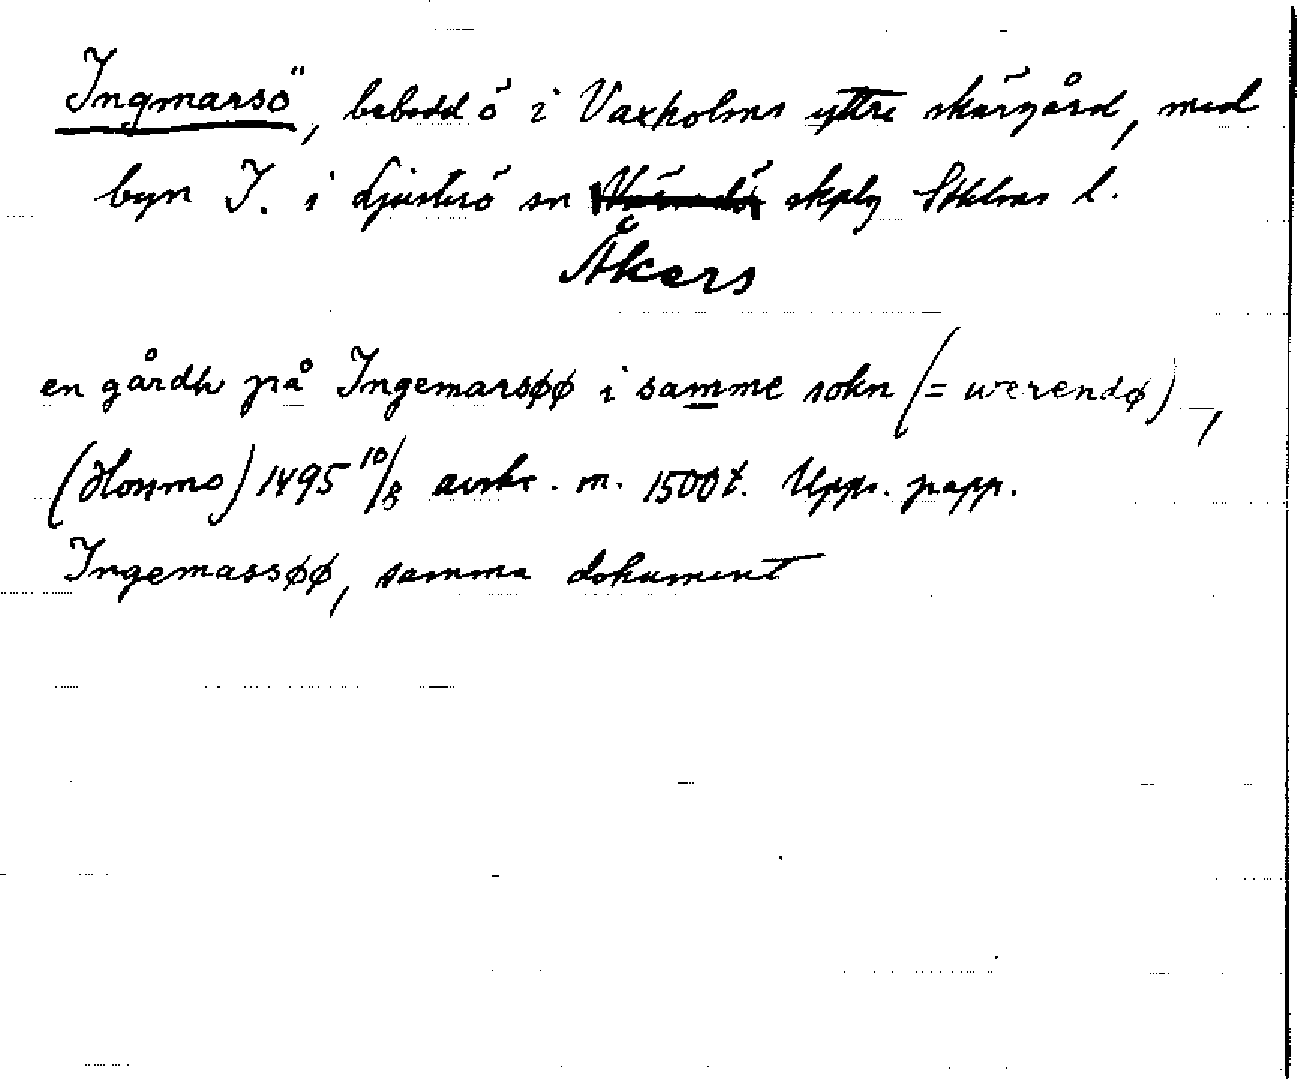 Ingmarsö, bebodd ö i Vaxholms yttre skärgård, med
byn I. i Ljusterö sn Värmdö skplg Sthlms l.
Åkers
en gårdh på Ingemarsøø i samme sokn (= werendø),
(Hossmo) 1495 10/8 avskr. m. 1500 t. Upps. papp.
Ingemassøø, samma dokument